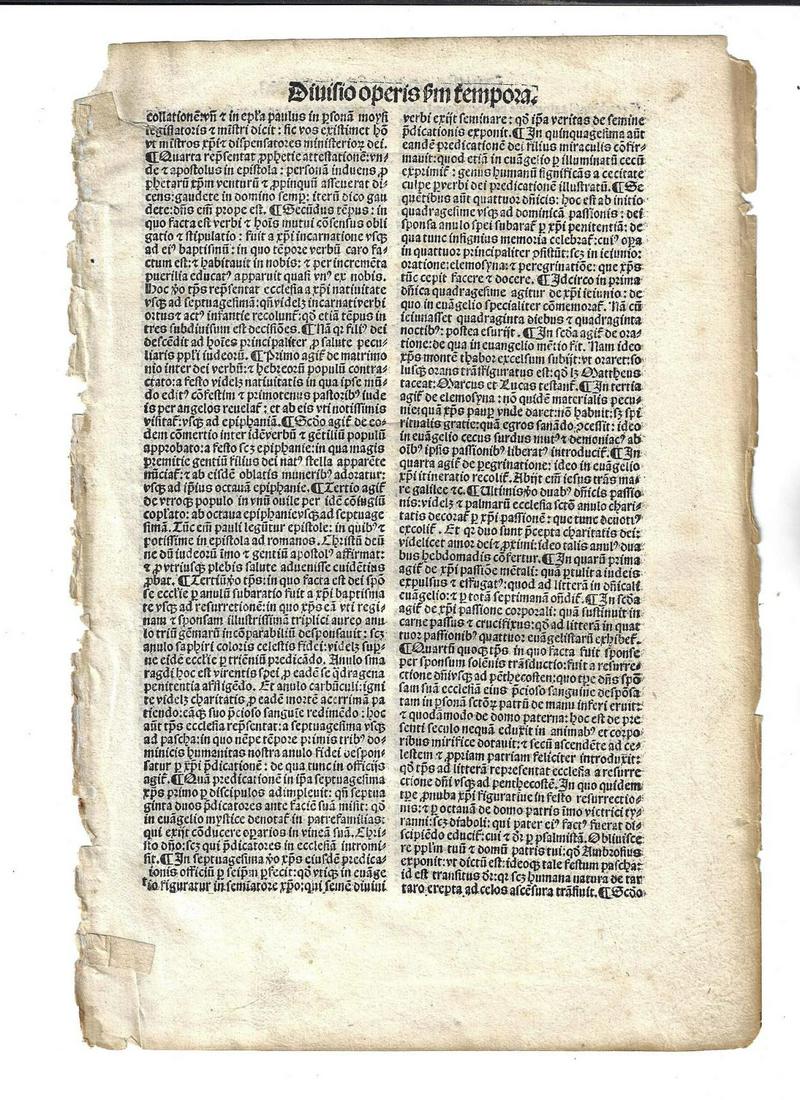 Diuisio operis ẜm tempora.
collationē: vñ ⁊ in epl̄a paulus in ꝑsonā moysi
legislatoris ⁊ mīstri dicit: sic vos existimet hō
vt mīstros xp̄i ⁊ dispensatores ministerioꝝ dei.
¶Quarta rep̄sentat ꝓphetie attestationē: vn-
de ⁊ apostolus in epistola: personā induens ꝓ
phetarū xp̄m venturū ⁊ ꝓpinquū asseuerat di-
cens: gaudete in domino semꝑ: iterū dico gau
dete: dn̄s em̄ prope est. ¶Secūdus tēpus: in
quo facta est verbi ⁊ hoīs mutui cōsensus obli
gatio ⁊ stipulatio: fuit a xp̄i incarnatione vsqꝫ
ad ei⁹ baptismū: in quo tēpore verbū caro fa-
ctum est: ⁊ habitauit in nobis: ⁊ per incremēta
puerilia educat⁹ apparuit quasi vn⁹ ex nobis.
Hoc v̄o tp̄s rep̄sentat ecclesia a xp̄i natiuitate
vsqꝫ ad septuagesimā: qn̄ videlꝫ incarnati verbi
ortus ⁊ act⁹ infantie recolunt᷑: qd̄ etiā tēpus in
tres subdiuisum est decisiōes. ¶Nā qꝛ fili⁹ dei
descēdit ad hoīes principaliter ꝓ salute pecu-
liaris pp̄li iudeorū. ¶Primo agit᷑ de matrimo
nio inter dei verbū: ⁊ hebreorū populū contra-
ctato: a festo videlꝫ natiuitatis in qua ipse mū-
do edit⁹ cōfestim ⁊ primotenus pastorib⁹ iude
is per angelos reuelat᷑: et ab eis vti notissimis
visitat᷑: vsqꝫ ad epiphaniā. ¶Scd̄o agit᷑ de eo-
dem cōmertio inter idē verbū ⁊ gētiliū populū
approbato: a festo scꝫ epiphanie: in qua magis
premitie gentiū filius dei nat⁹ stella apparēte
nūciat᷑: ⁊ ab eisdē oblatis munerib⁹ adoratur:
vsqꝫ ad ip̄ius octauā epiphanie. ¶Tertio agit᷑
de vtroqꝫ populo in vnū ouile per idē cōiugiū
coplato: ab octaua epiphanie vsqꝫ ad septuage
simā. Tūc em̄ pauli legūtur epistole: in quib⁹ ⁊
potissime in epistola ad romanos. Christū deū
ne dū iudeorū īmo ⁊ gentiū apostol⁹ affirmat:
⁊ ꝓ vtriusqꝫ plebis salute aduenisse euidētius
ꝓbat. ¶Tertiū v̄o tp̄s: in quo facta est dei spōn
se ecclīe ꝑ anulū subaratio fuit a xp̄i baptisma
te vsqꝫ ad resurrectionē: in quo xp̄s eā vti regi
nam ⁊ sponsam illustrissimā triplici aureo anu
lo triū gēmarū incōparabiliū desponsauit: scꝫ
anulo saphiri coloris celestis fidei: videlꝫ sup-
ne eide ecclīe ꝑ triēniū predicādo. Anulo sma
ragdi hoc est virentis spei ꝓ eadē se q̄dragena
penitentia affligēdo. Et anulo carbūculi: igni
te videlꝫ charitatis ꝓ eadē mortē acerrimā pa
tiendo: eāqꝫ suo p̄cioso sanguīe redimēdo: hoc
aūt tp̄s ecclesia rep̄sentat: a septuagesima vsqꝫ
ad pascha: in quo nēpe tēpore primis trib⁹ do-
minicis humanitas nostra anulo fidei despon-
satur ꝑ xp̄i p̄dicationē: de qua tunc in officijs
agit᷑. ¶Quā predicationē in ip̄a septuagesima
xp̄s primo ꝑ discipulos adimpleuit: qn̄ septua
ginta duos p̄dicatores ante faciē suā misit: qd̄
in euangelio mystice denotat᷑ in patrefamilias:
qui exijt cōducere oꝑarios in vineā suā. Chri-
sto dn̄o: scꝫ qui p̄dicatores in ecclesiā intromi-
sit. ¶In septuagesima v̄o xp̄s eiusdē predica-
tionis officiū ꝑ seip̄m ꝑfecit: qd̄ vtiqꝫ in euāge
lio figuratur in semiatore xp̄o: qui semē diuini
verbi exijt seminare: qd̄ ip̄a veritas de semine
p̄dicationis exponit. ¶In quinquagesima aūt
eandē predicationē dei filius miraculis cōfir-
mauit: quod etiā in euāgelio ꝑ illuminatū cecū
exprimit᷑: genus humanū significās a cecitate
culpe ꝑ verbi dei predicationē illustratū. ¶Se
quētibus aūt quattuor dn̄icis: hoc est ab initio
quadragesime vsqꝫ ad dominicā passionis: dei
sponsa anulo spei subarat᷑ ꝑ xp̄i penitentiā: de
qua tunc insignius memoria celebrat᷑: cui⁹ oꝑa
in quattuor principaliter ꝯsistūt: scꝫ in ieiunio:
oratione: elemosyna: ⁊ peregrinatiōe: que xp̄s
tūc cepit facere ⁊ docere. ¶Idcirco in prima
dn̄ica quadragesime agitur de xp̄i ieiunio: de
quo in euāgelio specialiter cōmemorat᷑. Nā cū
ieiunasset quadraginta diebus ⁊ quadraginta
noctib⁹: postea esurijt. ¶In scd̄a agit᷑ de ora-
tione: de qua in euangelio mētio fit. Nam ideo
xp̄s montē thabor excelsum subijt: vt oraret: so
lusqꝫ orans trāsfiguratus est: qd̄ lꝫ Mattheus
taceat: Marcus et Lucas testant᷑. ¶In tertia
agit᷑ de elemosyna: nō quidē materialis pecu-
nie: quā xp̄s pauꝑ vnde daret: nō habuit: sꝫ spi
ritualis gratie: quā egros sanādo ꝓcessit: ideo
in euāgelio cecus surdus mut⁹ ⁊ demoniac⁹ ab
oīb⁹ ip̄is passionib⁹ liberat⁹ introducit᷑. ¶In
quarta agit᷑ de ꝑegrinatione: ideo in euāgelio
xp̄i itineratio recolit᷑. Abijt em̄ iesus trās ma-
re galilee ⁊c. ¶Ultimis v̄o duab⁹ dn̄icis passio
nis: videlꝫ ⁊ palmarū ecclesia scd̄o anulo chari-
tatis decorat᷑ ꝑ xp̄i passionē: que tunc deuoti⁹
excolit᷑. Et qꝛ duo sunt p̄cepta charitatis dei:
videlicet amor dei ⁊ ꝓximi: ideo talis anul⁹ dua
bus hebdomadis cōfertur. ¶In quarū prima
agit᷑ de xp̄i passiōe mētali: quā ꝑtulit a iudeis
expulsus ⁊ effugat⁹: quod ad litterā in dn̄icali
euāgelio: ⁊ ꝑ totā septimanā on̄dit᷑. ¶In scd̄a
agit᷑ de xp̄i passione corporali: quā sustinuit in
carne passus ⁊ crucifixus: qd̄ ad litterā in quat
tuor passionib⁹ quattuor euāgelistarū exhibet᷑.
¶Quartū quoqꝫ tp̄s in quo facta fuit sponse
per sponsum solēnis trāsductio: fuit a resurre-
ctione dn̄i vsqꝫ ad pēthecosten: quo tp̄e dn̄s spōn
sam suā ecclesiā eius p̄cioso sanguine despōsa
tam in ꝑsonā sctōꝝ patrū de manu inferi eruit:
⁊ quodāmodo de domo paterna: hoc est de pre
senti seculo nequā eduxit in animab⁹ et corpo-
ribus mirifice dotauit: ⁊ secū ascendēte ad ce-
lestem ⁊ ꝓpriam patriam feliciter introduxit:
qd̄ tp̄s ad litterā representat ecclesia a resurre
ctione dn̄i vsqꝫ ad penthecostē. In quo quidem
tp̄e ꝓnuba xp̄i figuratiue in festo resurrectio-
nis: ⁊ ꝑ octauā de domo patris īmo victrici ty-
ranni: scꝫ diaboli: qui pater ei⁹ fact⁹ fuerat di-
scipiēdo educit᷑: cui ⁊ dr̄ ꝑ psalmistā. Obliuisce
re pp̄lm tuū ⁊ domū patris tui: qd̄ Ambrosius
exponit: vt dictū est: ideoqꝫ tale festum pascha:
id est transitus dr̄: qꝛ scꝫ humana natura de tar
taro erepta ad celos ascēsura trāsiuit. ¶Scd̄o